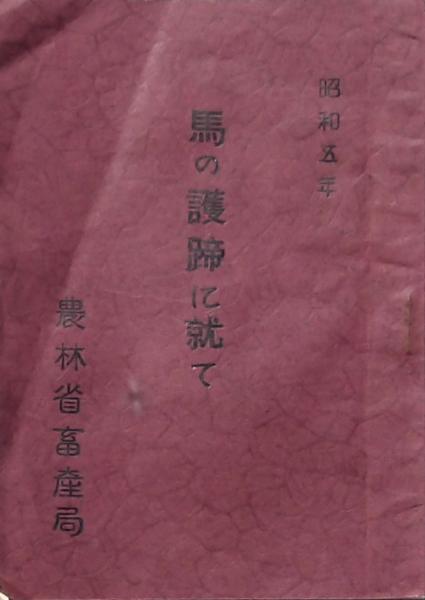 昭和五年
馬の護蹄に就て
農林省畜産局